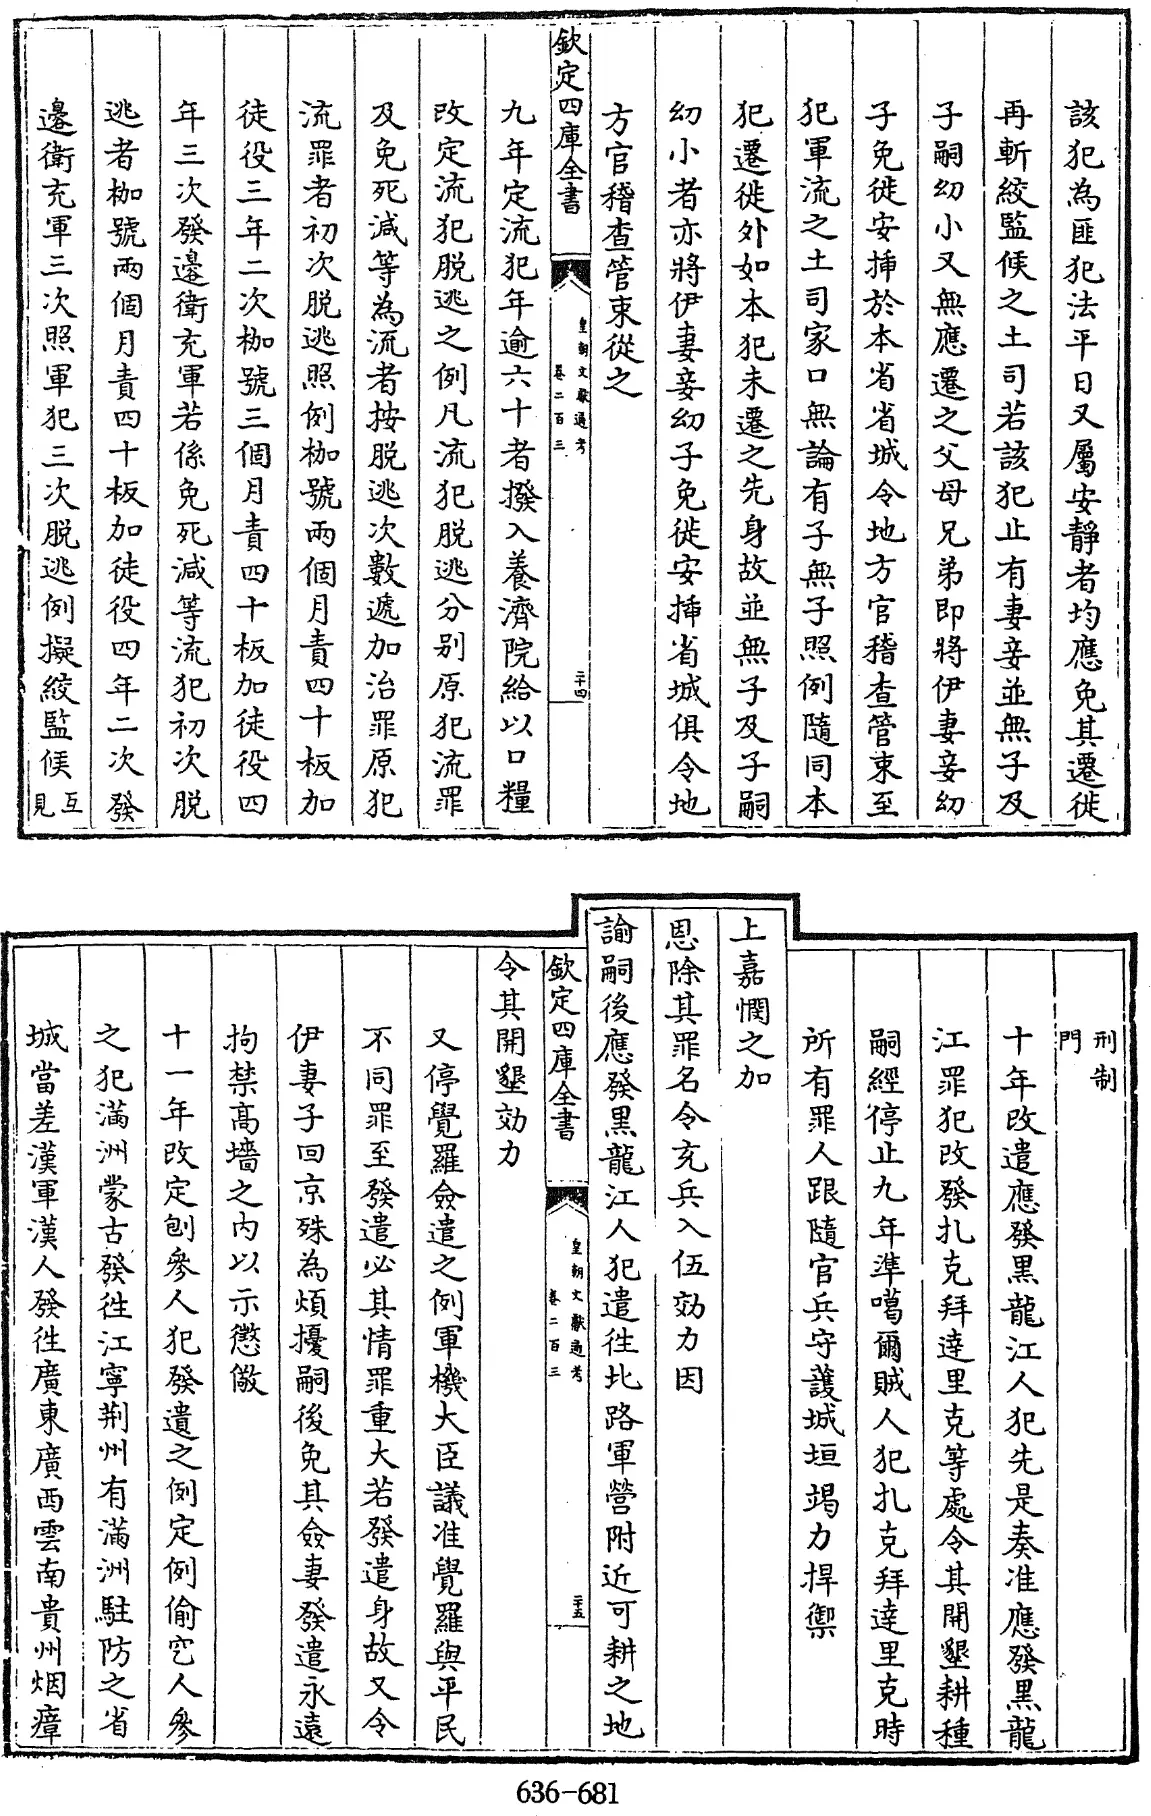 該犯為匪犯法平日又屬安靜者均應免其遷徙
再斬絞監候之土司若該犯止有妻妾並無子及
子嗣幼小又無應遷之父母兄弟即將伊妻妾幼
子免徙安揷於本省省城令地方官稽查管束至
犯軍流之土司家口無論有子無子照例隨同本
犯遷徙外如本犯未遷之先身故並無子及子嗣
幼小者亦將伊妻妾幼子免徙安揷省城俱令地
方官稽查管束從之
欽定四庫全書
皇朝文獻通考
卷二百三
二十四
九年定流犯年逾六十者撥入養濟院給以口糧
改定流犯脱逃之例凡流犯脱逃分别原犯流罪
及免死減等為流者按脱逃次數遞加治罪原犯
流罪者初次脱逃照例枷號兩個月責四十板加
徒役三年二次枷號三個月責四十板加徒役四
年三次發邊衛充軍若係免死減等流犯初次脱
逃者枷號兩個月責四十板加徒役四年二次發
邊衛充軍三次照軍犯三次脱逃例擬絞監候互
見
刑制
門
十年改遣應發黑龍江人犯先是奏准應發黑龍
江罪犯改發扎克拜達里克等處令其開墾耕種
嗣經停止九年準噶爾賊人犯扎克拜達里克時
所有罪人跟隨官兵守護城垣竭力捍禦
上嘉憫之加
恩除其罪名令充兵入伍効力因
諭嗣後應發黑龍江人犯遣徃北路軍營附近可耕之地
欽定四庫全書
皇朝文獻通考
卷二百三
二十五
令其開墾効力
又停覺羅僉遣之例軍機大臣議准覺羅與平民
不同罪至發遣必其情罪重大若發遣身故又令
伊妻子回京殊為煩擾嗣後免其僉妻發遣永遠
拘禁高墻之内以示懲儆
十一年改定刨參人犯發遣之例定例偷穵人參
之犯滿洲蒙古發徃江寧荆州有滿洲駐防之省
城當差漢軍漢人發徃廣東廣西雲南貴州烟瘴
636-681